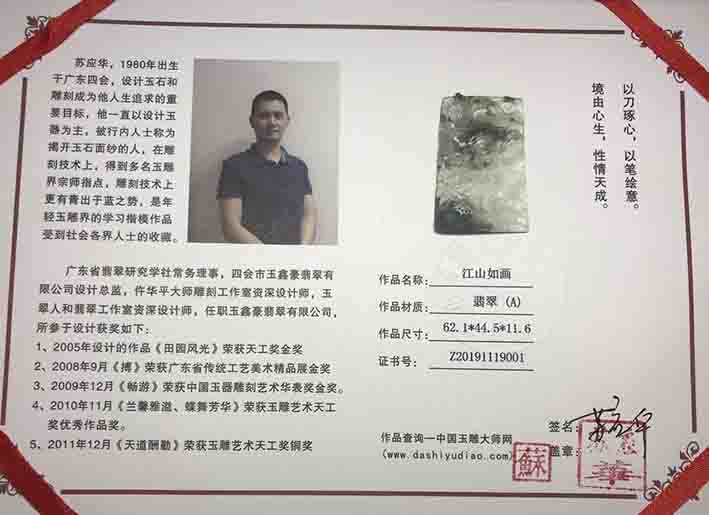 苏应华，1980年出生
于广东四会，设计玉石和
雕刻成为他人生追求的重
要目标，他一直以设计玉
器为主，被行内人士称为
揭开玉石面纱的人，在雕
刻技术上，得到多名玉雕
界宗师指点，雕刻技术上
更有青出于蓝之势，是年
轻玉雕界的学习楷模作品
受到社会各界人士的收藏。
广东省翡翠研究学社常务理事，四会市玉鑫豪翡翠有
限公司设计总监，仵华平大师雕刻工作室资深设计师，玉
翠人和翡翠工作室资深设计师，任职玉鑫豪翡翠有限公司，
所参于设计获奖如下：
1、2005年设计的作品《田园风光》荣获天工奖金奖
2、2008年9月《搏》荣获广东省传统工艺美术精品展金奖。
3、2009年12月《畅游》荣获中国玉器雕刻艺术华表奖金奖。
4、2010年11月《兰馨雅滋、蝶舞芳华》荣获玉雕艺术天工
奖优秀作品奖。
5、2011年12月《天道酬勤》荣获玉雕艺术天工奖铜奖
以刀琢心，以笔绘意。
境由心生，性情天成。
作品名称：江山如画
作品材质：翡翠（A）
作品尺寸：62.1*44.5*11.6
证书号：Z20191119001
作品查询—中国玉雕大师网
(www.dashiyudiao.com)
签名：苏应华
盖章：
蘇